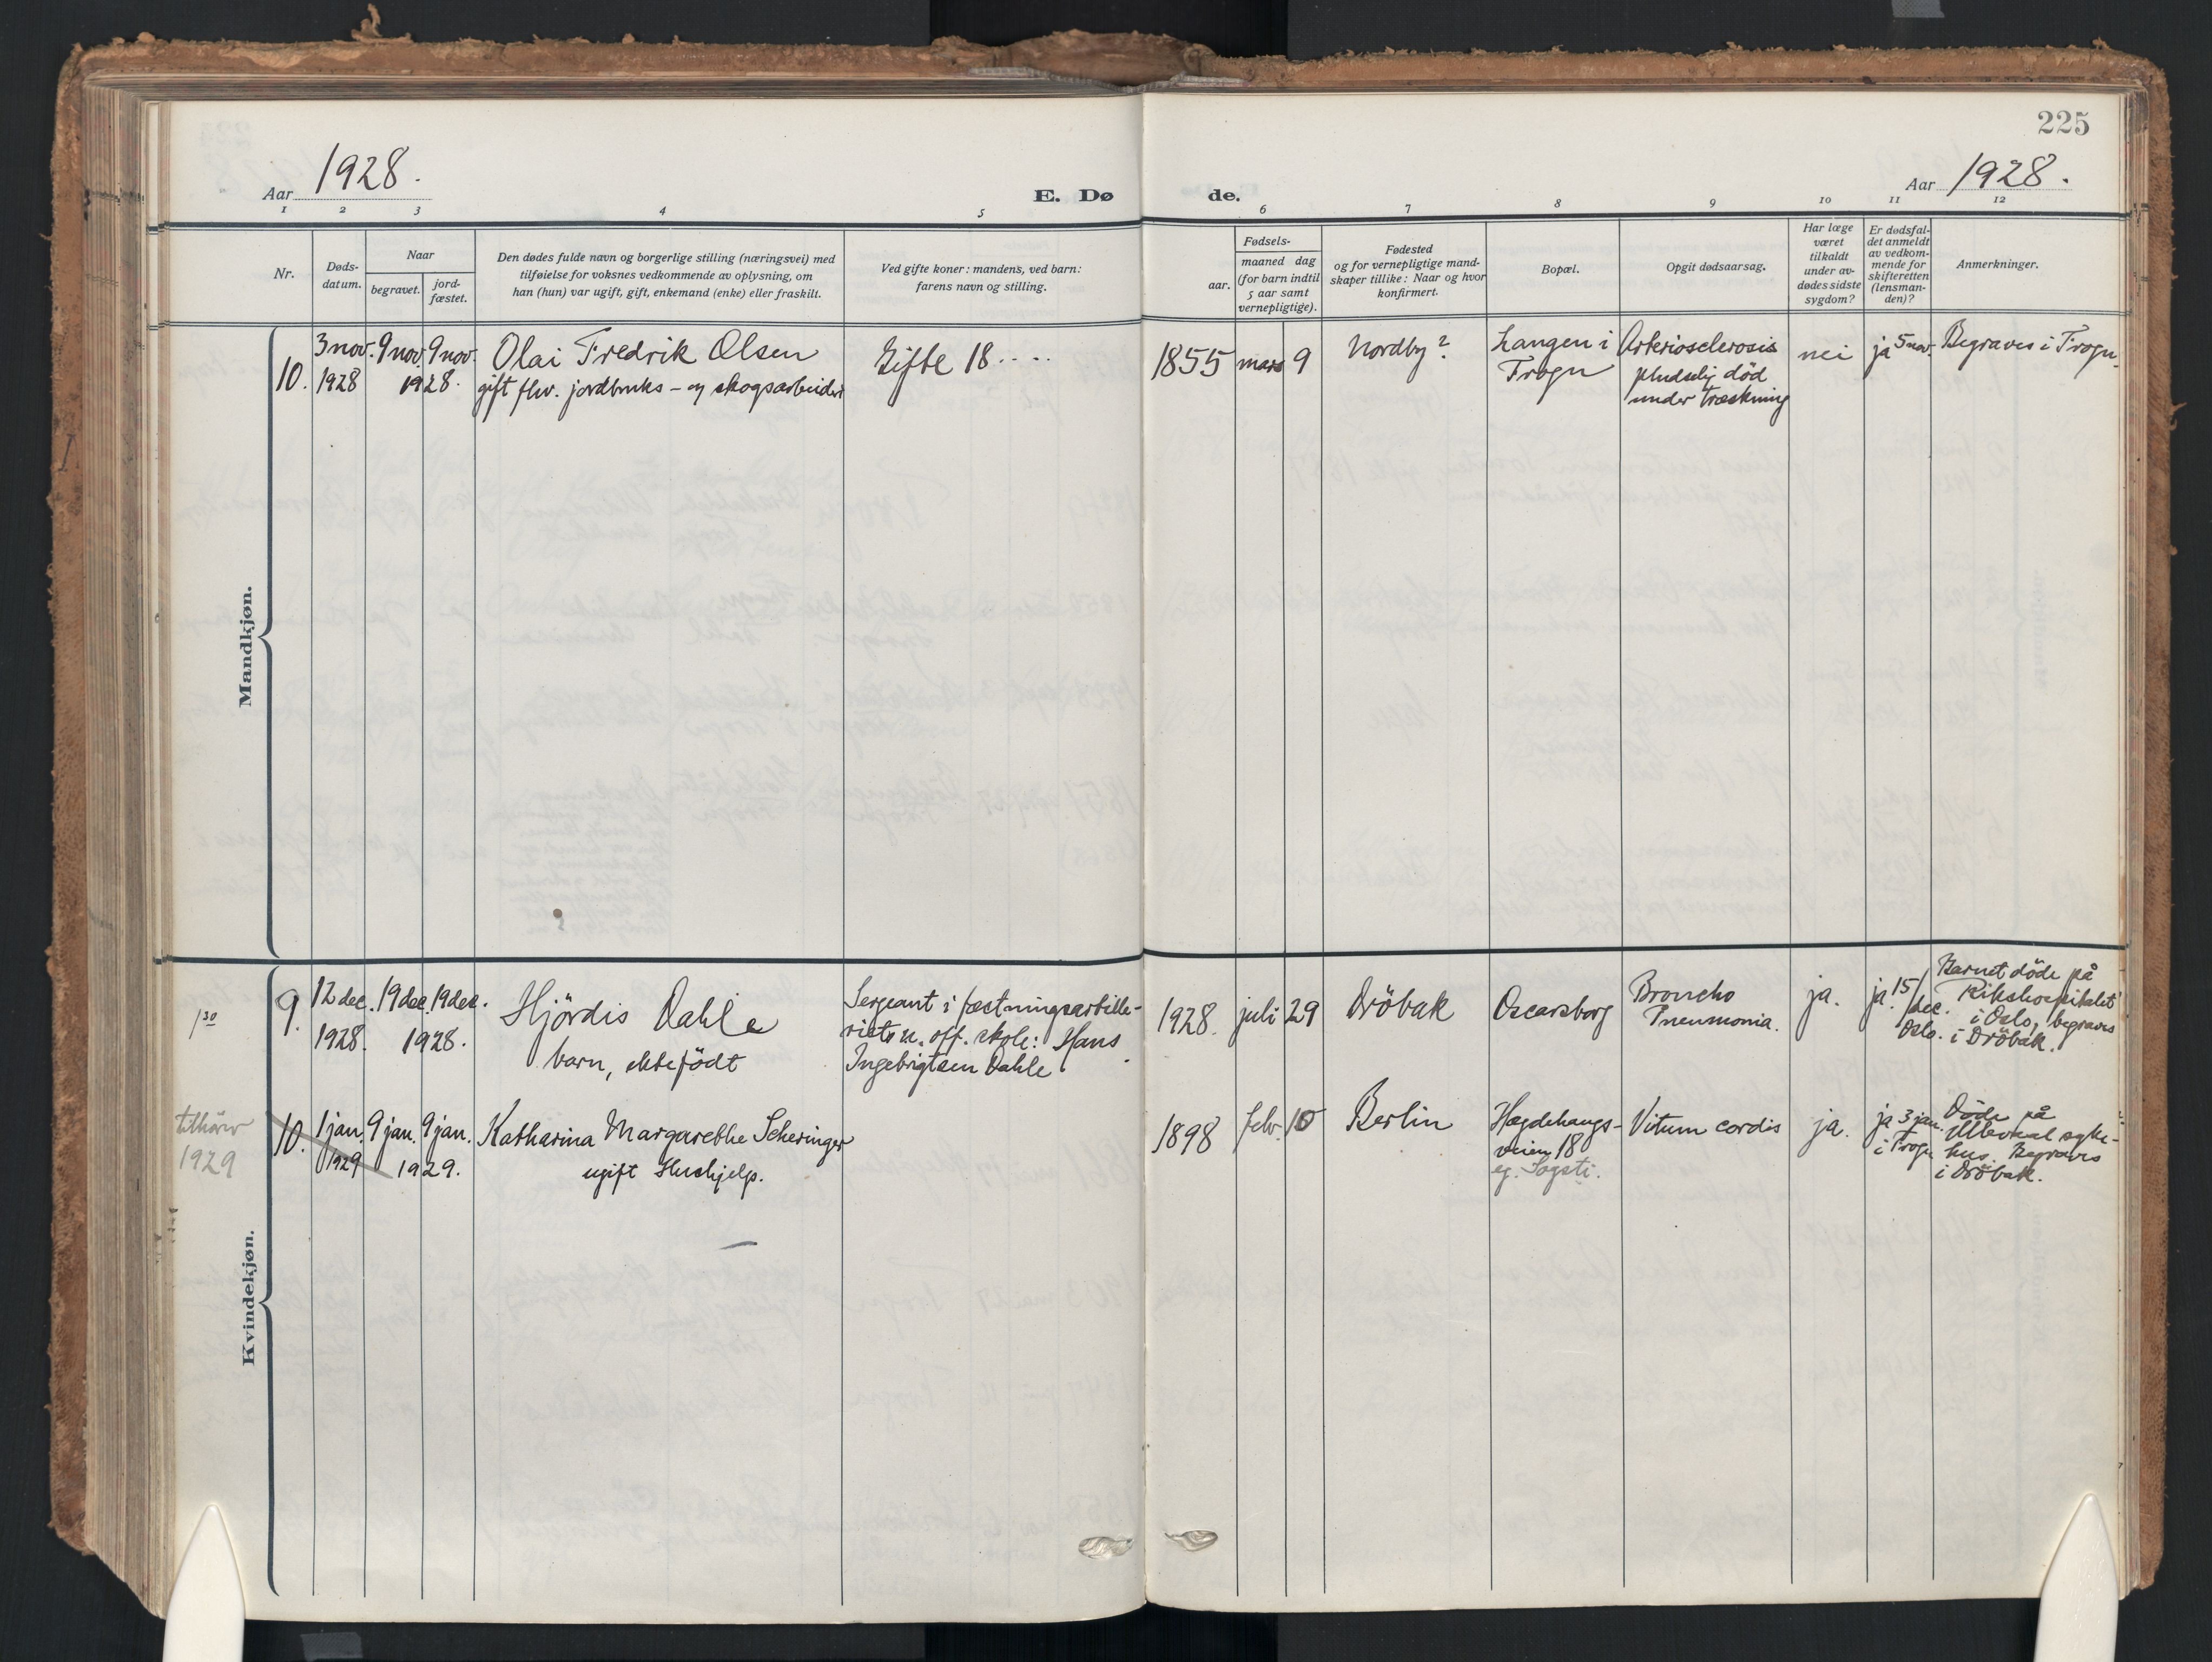 225
Aar 1928.
E. Dø de.
Aar 1928.
1 2 3 4 5 6 7 8 9 10 11 12
Nr.
Døds-
datum.
Naar
begravet.
jord-
fæstet.
Den dødes fulde navn og borgerlige stilling (næringsvei) med
tilføielse for voksnes vedkommende av oplysning, om
han (hun) var ugift, gift, enkemand (enke) eller fraskilt.
Ved gifte koner: mandens, ved barn:
farens navn og stilling.
Fødsels-
aar.
maaned dag
(for barn indtil
5 aar samt
vernepligtige).
Fødested
og for vernepligtige mand-
skaper tillike: Naar og hvor
konfirmert.
Bopæl.
Opgit dødsaarsag.
Har læge
været
tilkaldt
under av-
dødes sidste
sygdom?
Er dødsfal-
det anmeldt
av vedkom-
mende for
skifteretten
(lensman-
den)?
Anmerkninger.
Mandkjøn.
10.
3 nov.
1928
9 nov. 9 nov.
1928.
Olai Fredrik Olsen
gift fhv. jordbruks- og skogsarbeider
Gifte 18....
1855 mars 9
Nordby?
Langen i
Frogn
Arteriosclerosis
pludselig død
under træskning
nei
ja 5 nov.
Begraves i Frogn.
Kvindekjøn.
1 30
9.
12 dec.
1928.
19 dec. 19 dec.
1928.
Hjördis Dahle
barn, ektefödt
Sergeant i fæstningsartille-
riets u. off. skole: Hans
Ingebrigtsen Dahle.
1928. juli 29
Dröbak
Oscarsborg
Broncho
Pneumonia.
ja.
ja 15/
dec.
Oslo.
Barnet döde på
Rikshospitalet
i Oslo, begraves
i Dröbak.
tilhörer
1929
10.
1 jan.
1929
9 jan. 9 jan.
1929.
Katharina Margarethe Scheringer
ugift Hushjelp.
1898 febr. 10
Berlin
Hegdehaugs-
veien 18
eg. Sogsti.
Vitum cordis
ja.
ja 3 jan.
i Frogn
Döde på
Ullevaal syke-
hus. Begraves
i Dröbak.